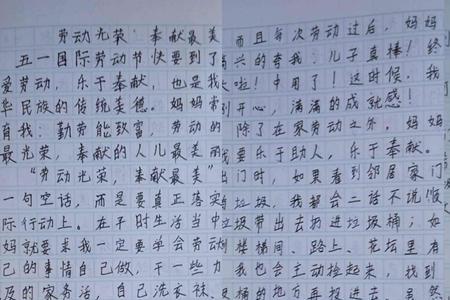 劳动光荣 奉献最美
五一国际劳动节快要到了
爱劳动，乐于奉献，也是我
华民族的传统美德。妈妈常
育我：勤劳能致富，劳动的
最光荣，奉献的人儿最美丽
“劳动光荣，奉献最美”
一句空话，而是要真正落实
际行动上。在平时生活当中
妈就要求我一定要学会劳动
己的事情自己做，干一些力
及的家务活，自己洗衣袜、
而且每次劳动过后，妈妈
兴的夸我：儿子真棒！终
大啦！中用了！这时候，我
到开心，满满的成就感！
除了在家劳动之外，妈妈
我要乐于助人，乐于奉献。
出门时，如果看到邻居家门
有垃圾，我都会二话不说顺
垃圾带出去扔进垃圾桶；如
楼梯间、路上、花坛里有
我也会主动捡起来，找到
桶的地方再投进去。虽然